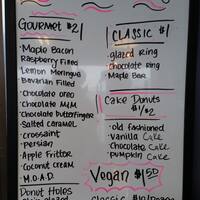 Gourmet $2
• Maple Bacon
Raspberry Filled
Lemon Meringue
Bavarian Filled
• Chocolate oreo
• Chocolate M&M
• Chocolate Butterfinger
• Salted Caramel
• croissaint
• Persian
• Apple Fritter
• Coconut cream
• M.O.A.D.
Donut Holes
CLASSIC $1
• glazed ring
• chocolate ring
• Maple Bar
Cake Donuts
$1/$2
• old fashioned
• Vanilla Cake
• Chocolate Cake
• pumpkin Cake
Vegan $1.50